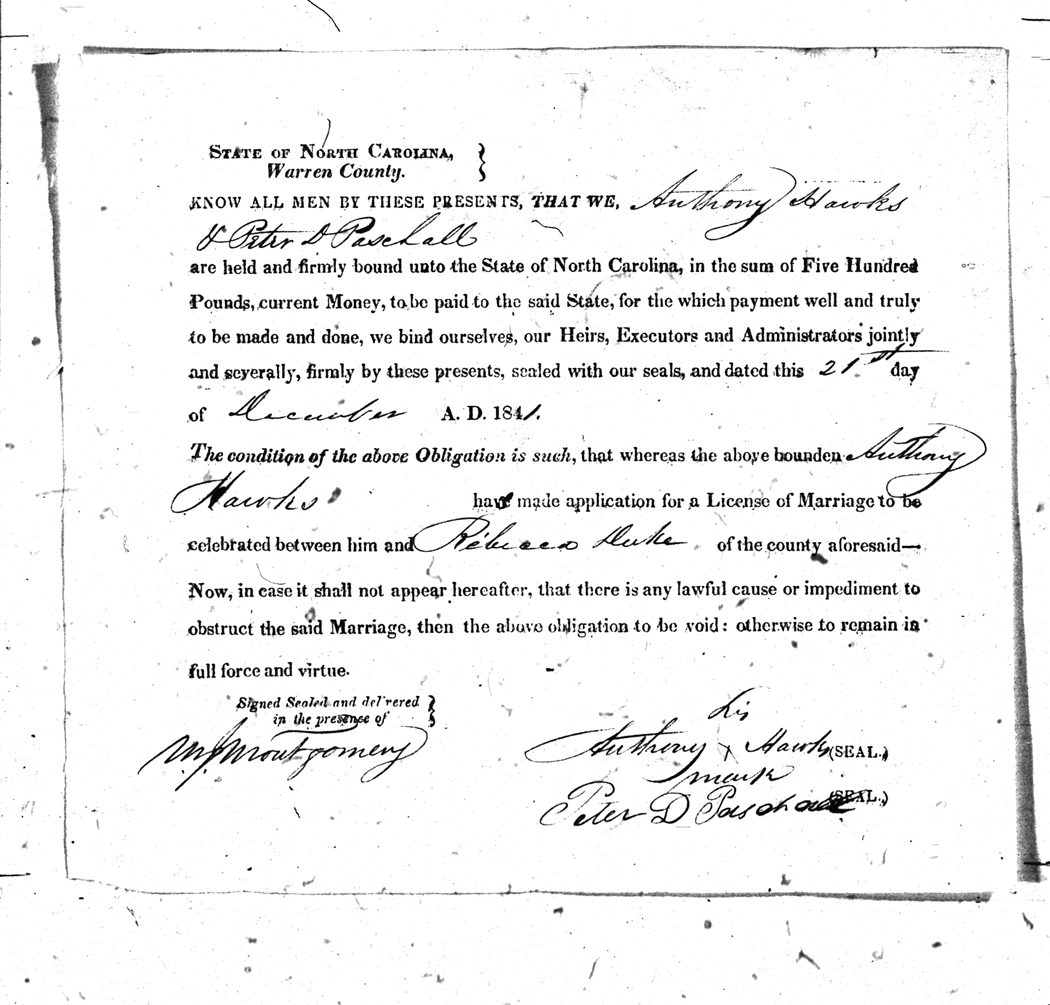 STATE OF NORTH CAROLINA,
Warren County.
KNOW ALL MEN BY THESE PRESENTS, THAT WE, Anthony Hawks
& Peter D Paschall
are held and firmly bound unto the State of North Carolina, in the sum of Five Hundred
Pounds, current Money, to be paid to the said State, for the which payment well and truly
to be made and done, we bind ourselves, our Heirs, Executors and Administrators jointly
and severally, firmly by these presents, sealed with our seals, and dated this 21st day
of December A. D. 1841.
The condition of the above Obligation is such, that whereas the above bounden Anthony
Hawks has made application for a License of Marriage to be
celebrated between him and Rebecca Duke of the county aforesaid—
Now, in case it shall not appear hereafter, that there is any lawful cause or impediment to
obstruct the said Marriage, then the above obligation to be void: otherwise to remain in
full force and virtue.
Signed Sealed and del'vered
in the presence of
his
Anthony x Hawks (SEAL.)
mark
Peter D Paschall (SEAL.)
Montgomery